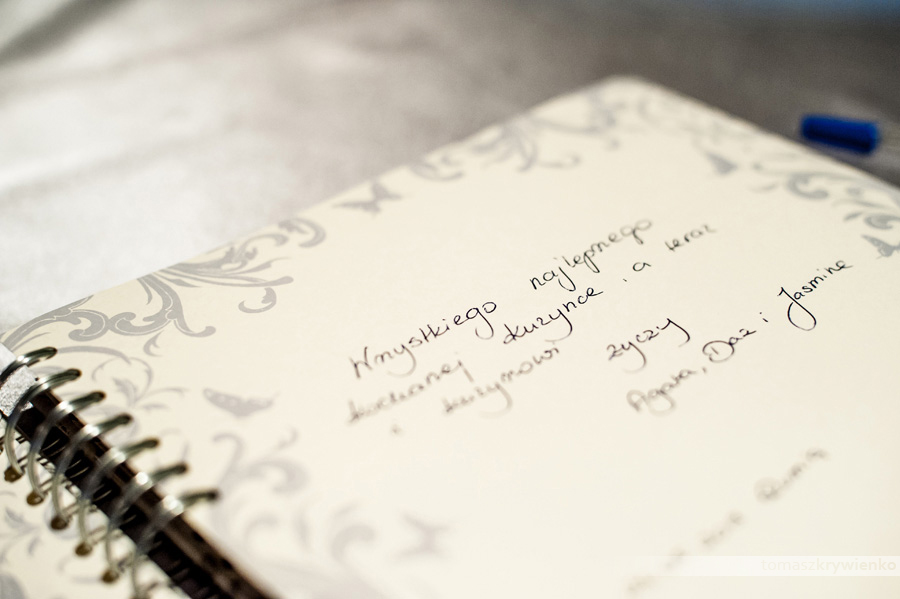 Wszystkiego najlepszego
kochanej kuzynce, a teraz
i kuzynowi życzy
Agata, Daz i Jasmine
tomaszkrywienko